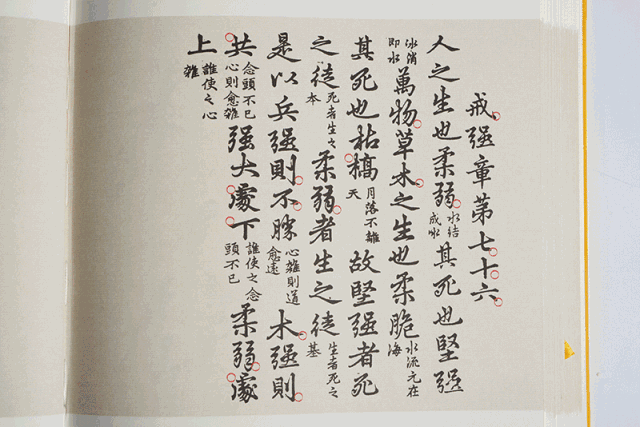 戒强章第七十六
人之生也柔弱水結成冰其死也堅强
冰消即水萬物草木之生也柔脆水流元在海
其死也枯槁月落不離天故堅强者死
之徒死者生之本柔弱者生之徒生者死之基
是以兵强則不勝心雜則道愈遠木强則
共念頭不已心則愈雜强大處下誰使之念頭不已柔弱處
上誰使之心雜